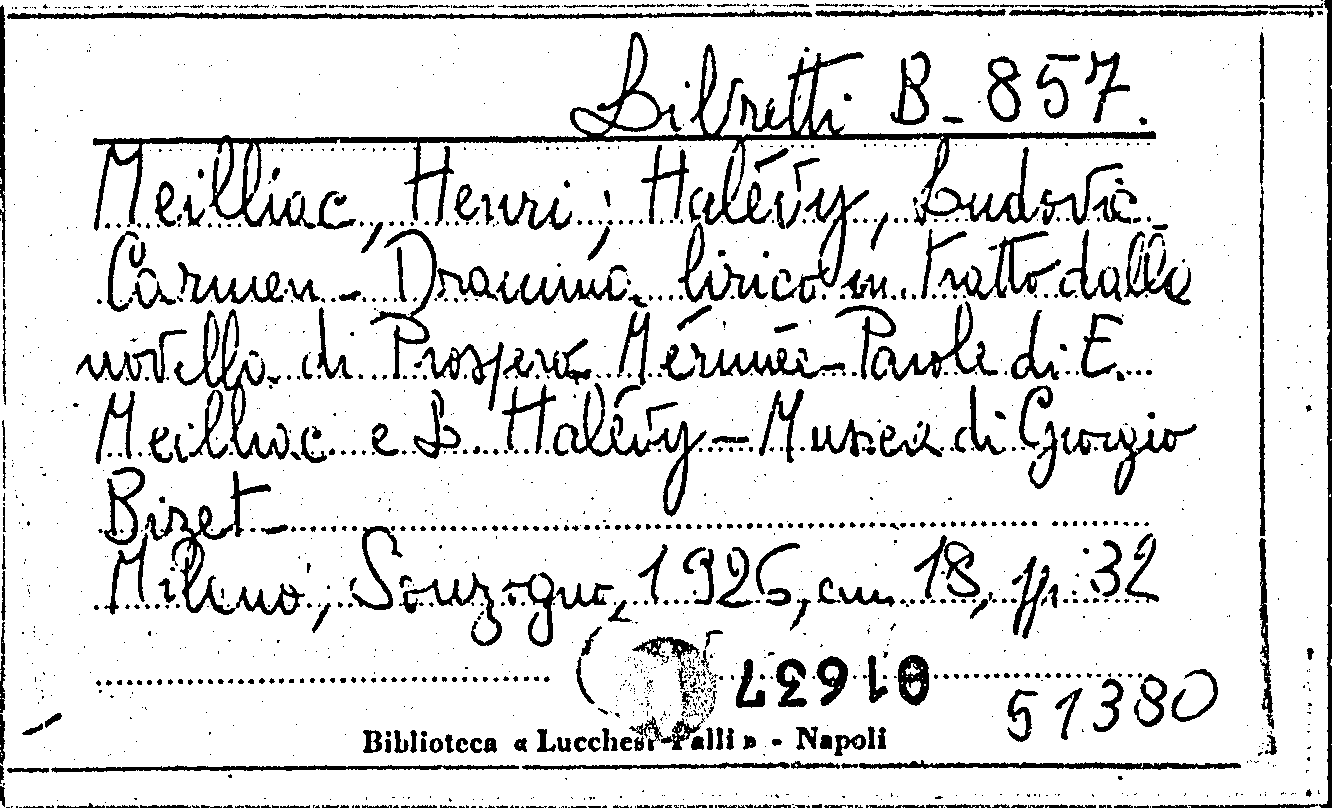 Libretti B-857.
Meilliac, Henri; Halévy, Ludovic
Carmen - Dramma lirico in tratto dalla
novella di Prospero Mérimée - Parole di E.
Meilhac e L. Halévy - Musica di Giorgio
Bizet -
Milano, Sonzogno, 1926, cm 18, pp. 32
01637
51380
Biblioteca « Lucchesi-Palli » - Napoli